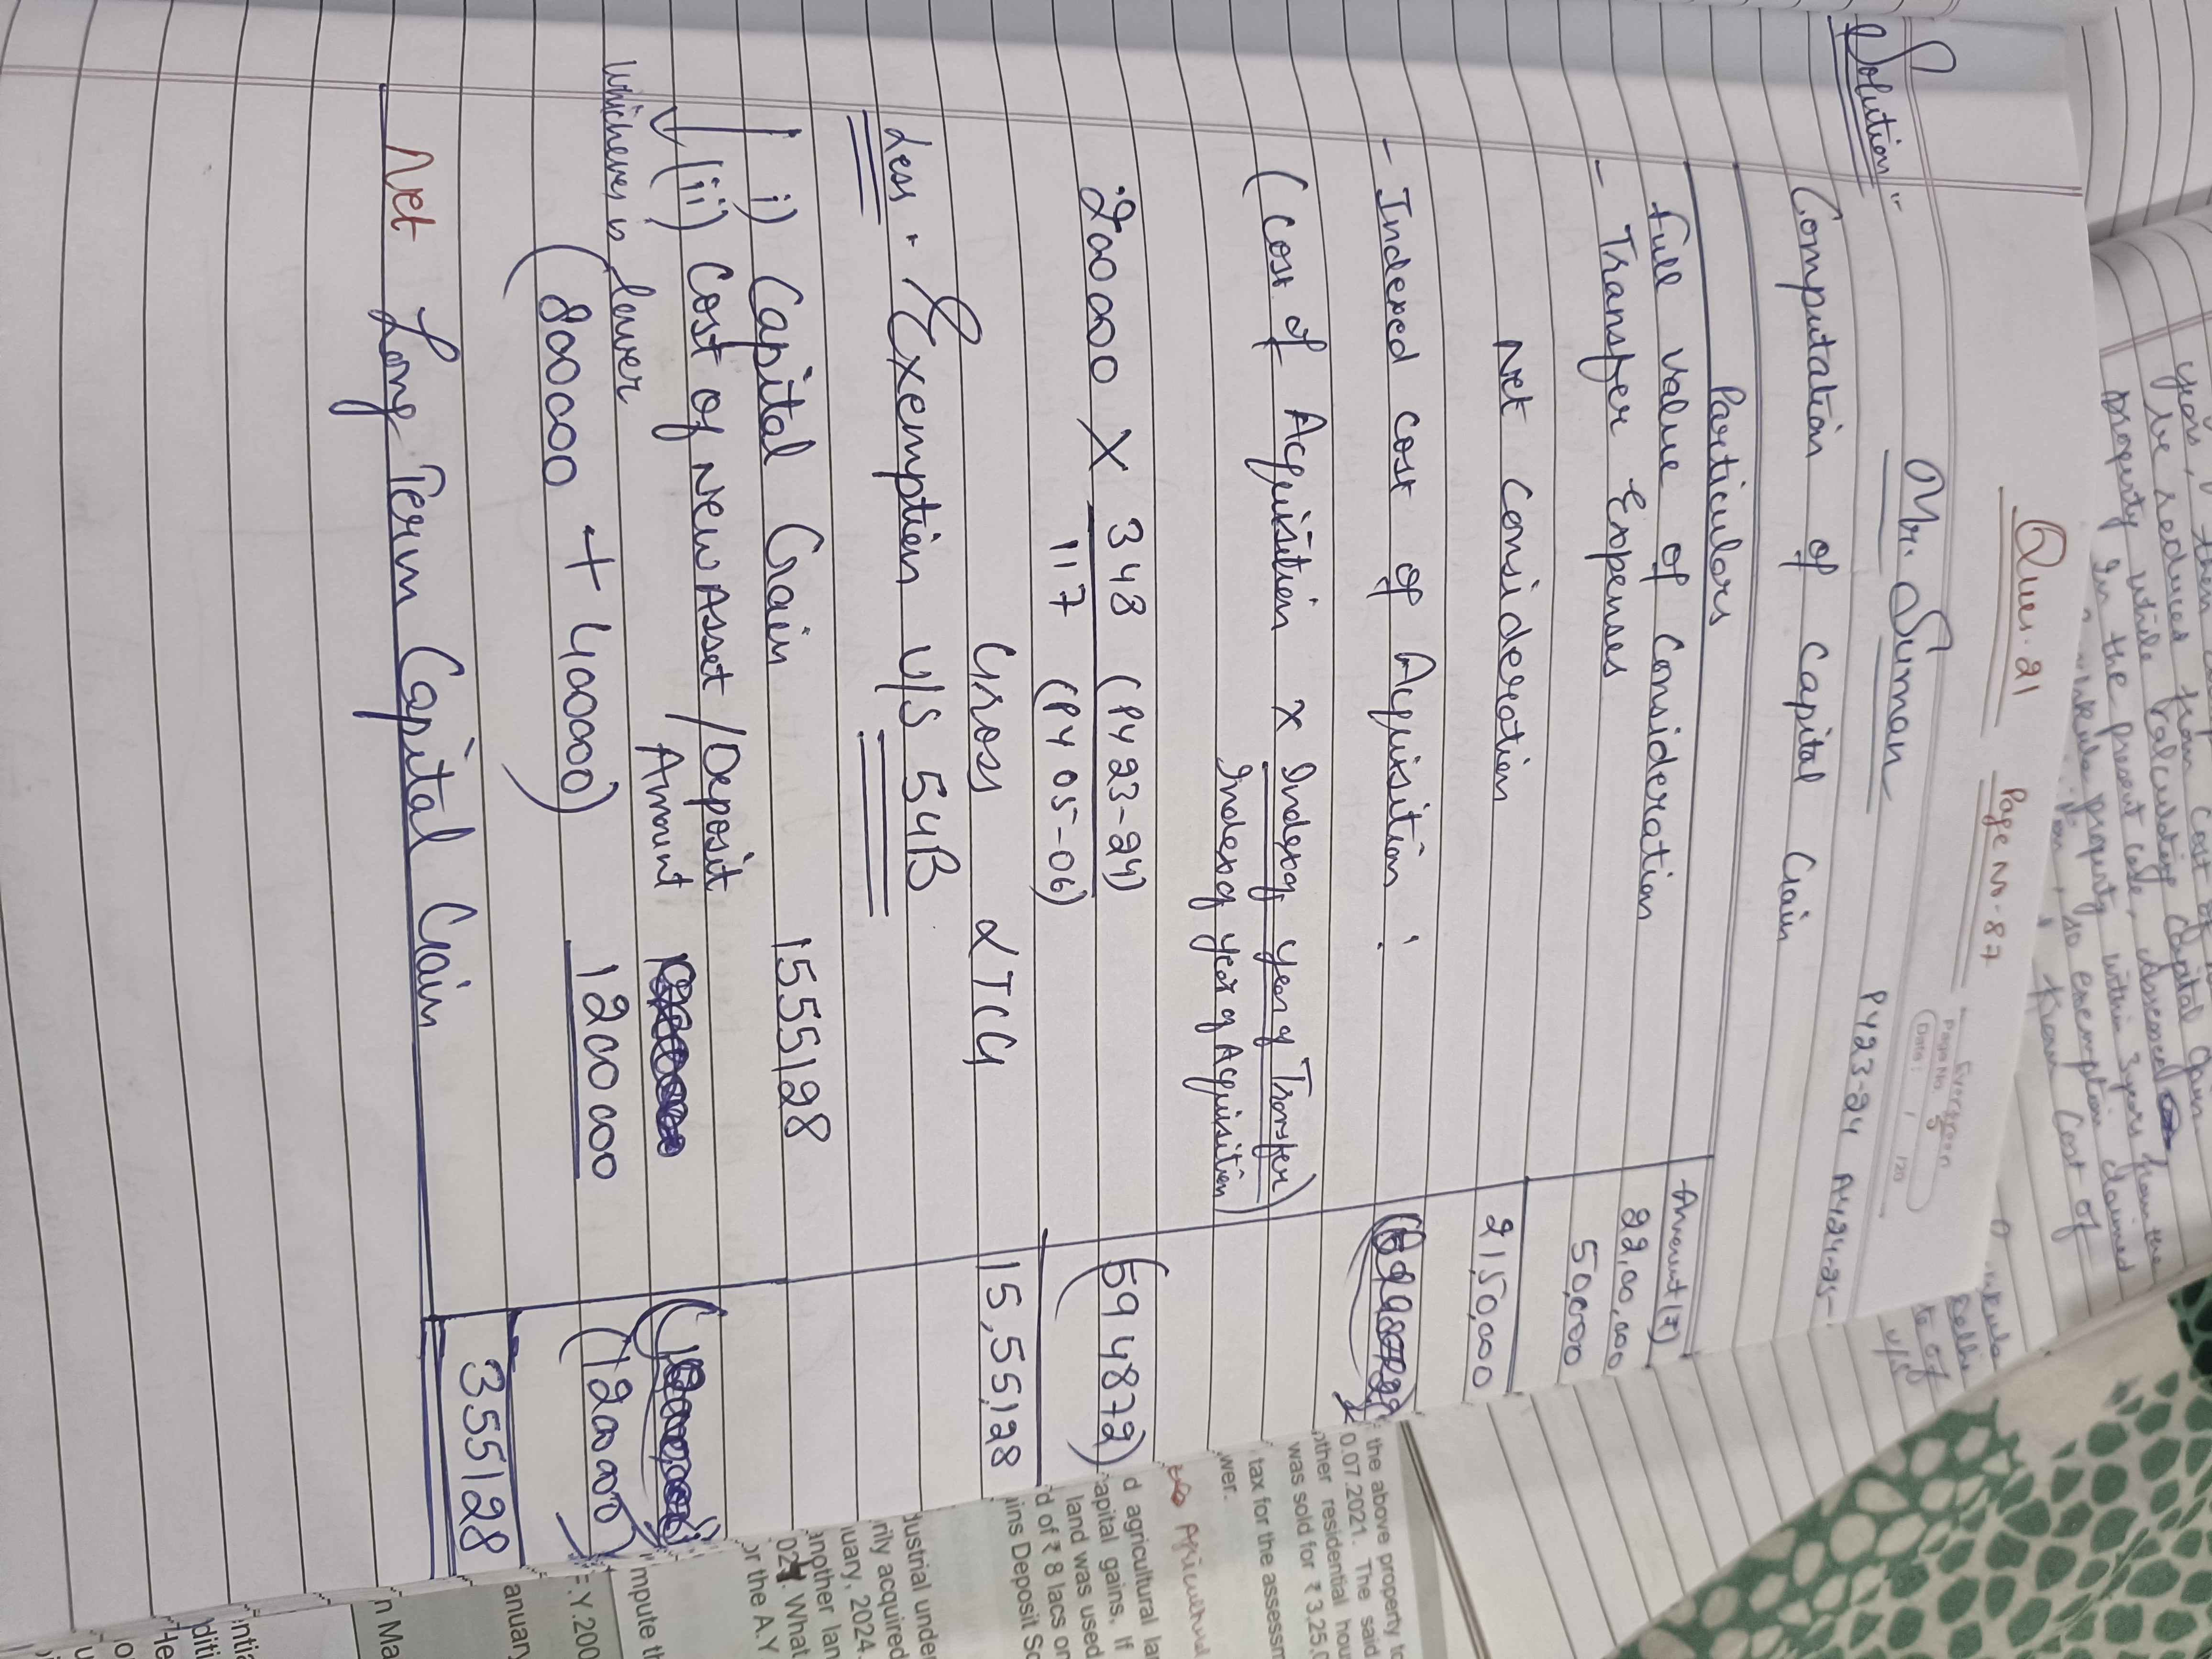 Ques. 21 Page No. 87
Evergreen
Page No. 5
Date: / /20
Mr. Suman
PY 23-24 AY 24-25
Solution:-
Computation of Capital Gain
Particulars Amount (₹)
Full Value of Consideration 22,00,000
- Transfer Expenses 50,000
Net Consideration 21,50,000
- Indexed Cost of Acquisition :
(Cost of Acquisition x Index of year of Transfer)
Index of year of Acquisition)
200000 X 348 (PY 23-24) (594872)
117 (PY 05-06)
Gross LTCG 15,55,128
Less : Exemption U/S 54B
i) Capital Gain 1555128
(ii) Cost of New Asset / Deposit
Amount
whichever is lower
(800000 + 400000) 1200000 (1200000)
355128
Net Long Term Capital Gain
be reduced from cost of
property while calculating Capital Gain
In the present case, assessee
property within 3 years from the
so exemption claimed
from Cost of
the above property to
0.07.2021. The said
other residential hou
was sold for ₹ 3,25,0
tax for the assessm
wer.
d agricultural la
apital gains. If
land was used
d of ₹ 8 lacs on
ains Deposit Sc
dustrial under
rily acquired
uary, 2024.
another lan
What
or the A.Y
mpute th
F.Y.200
anuary
n Ma